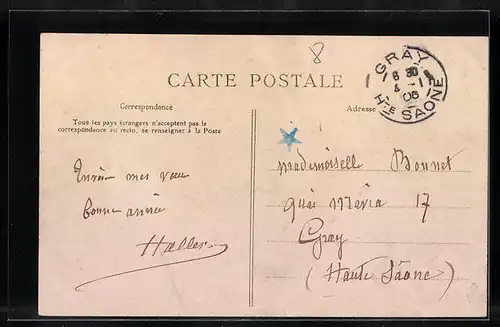 8
GRAY
6 30
4 -1
06
Hte SAONE
CARTE POSTALE
Correspondance
Tous les pays étrangers n'acceptent pas la
correspondance au recto, se renseigner à la Poste
Adresse
Envoie mes vœux
bonne année
Haller
Mademoiselle Bonnet
Quai Mavia 17
Gray
(Haute Saône)